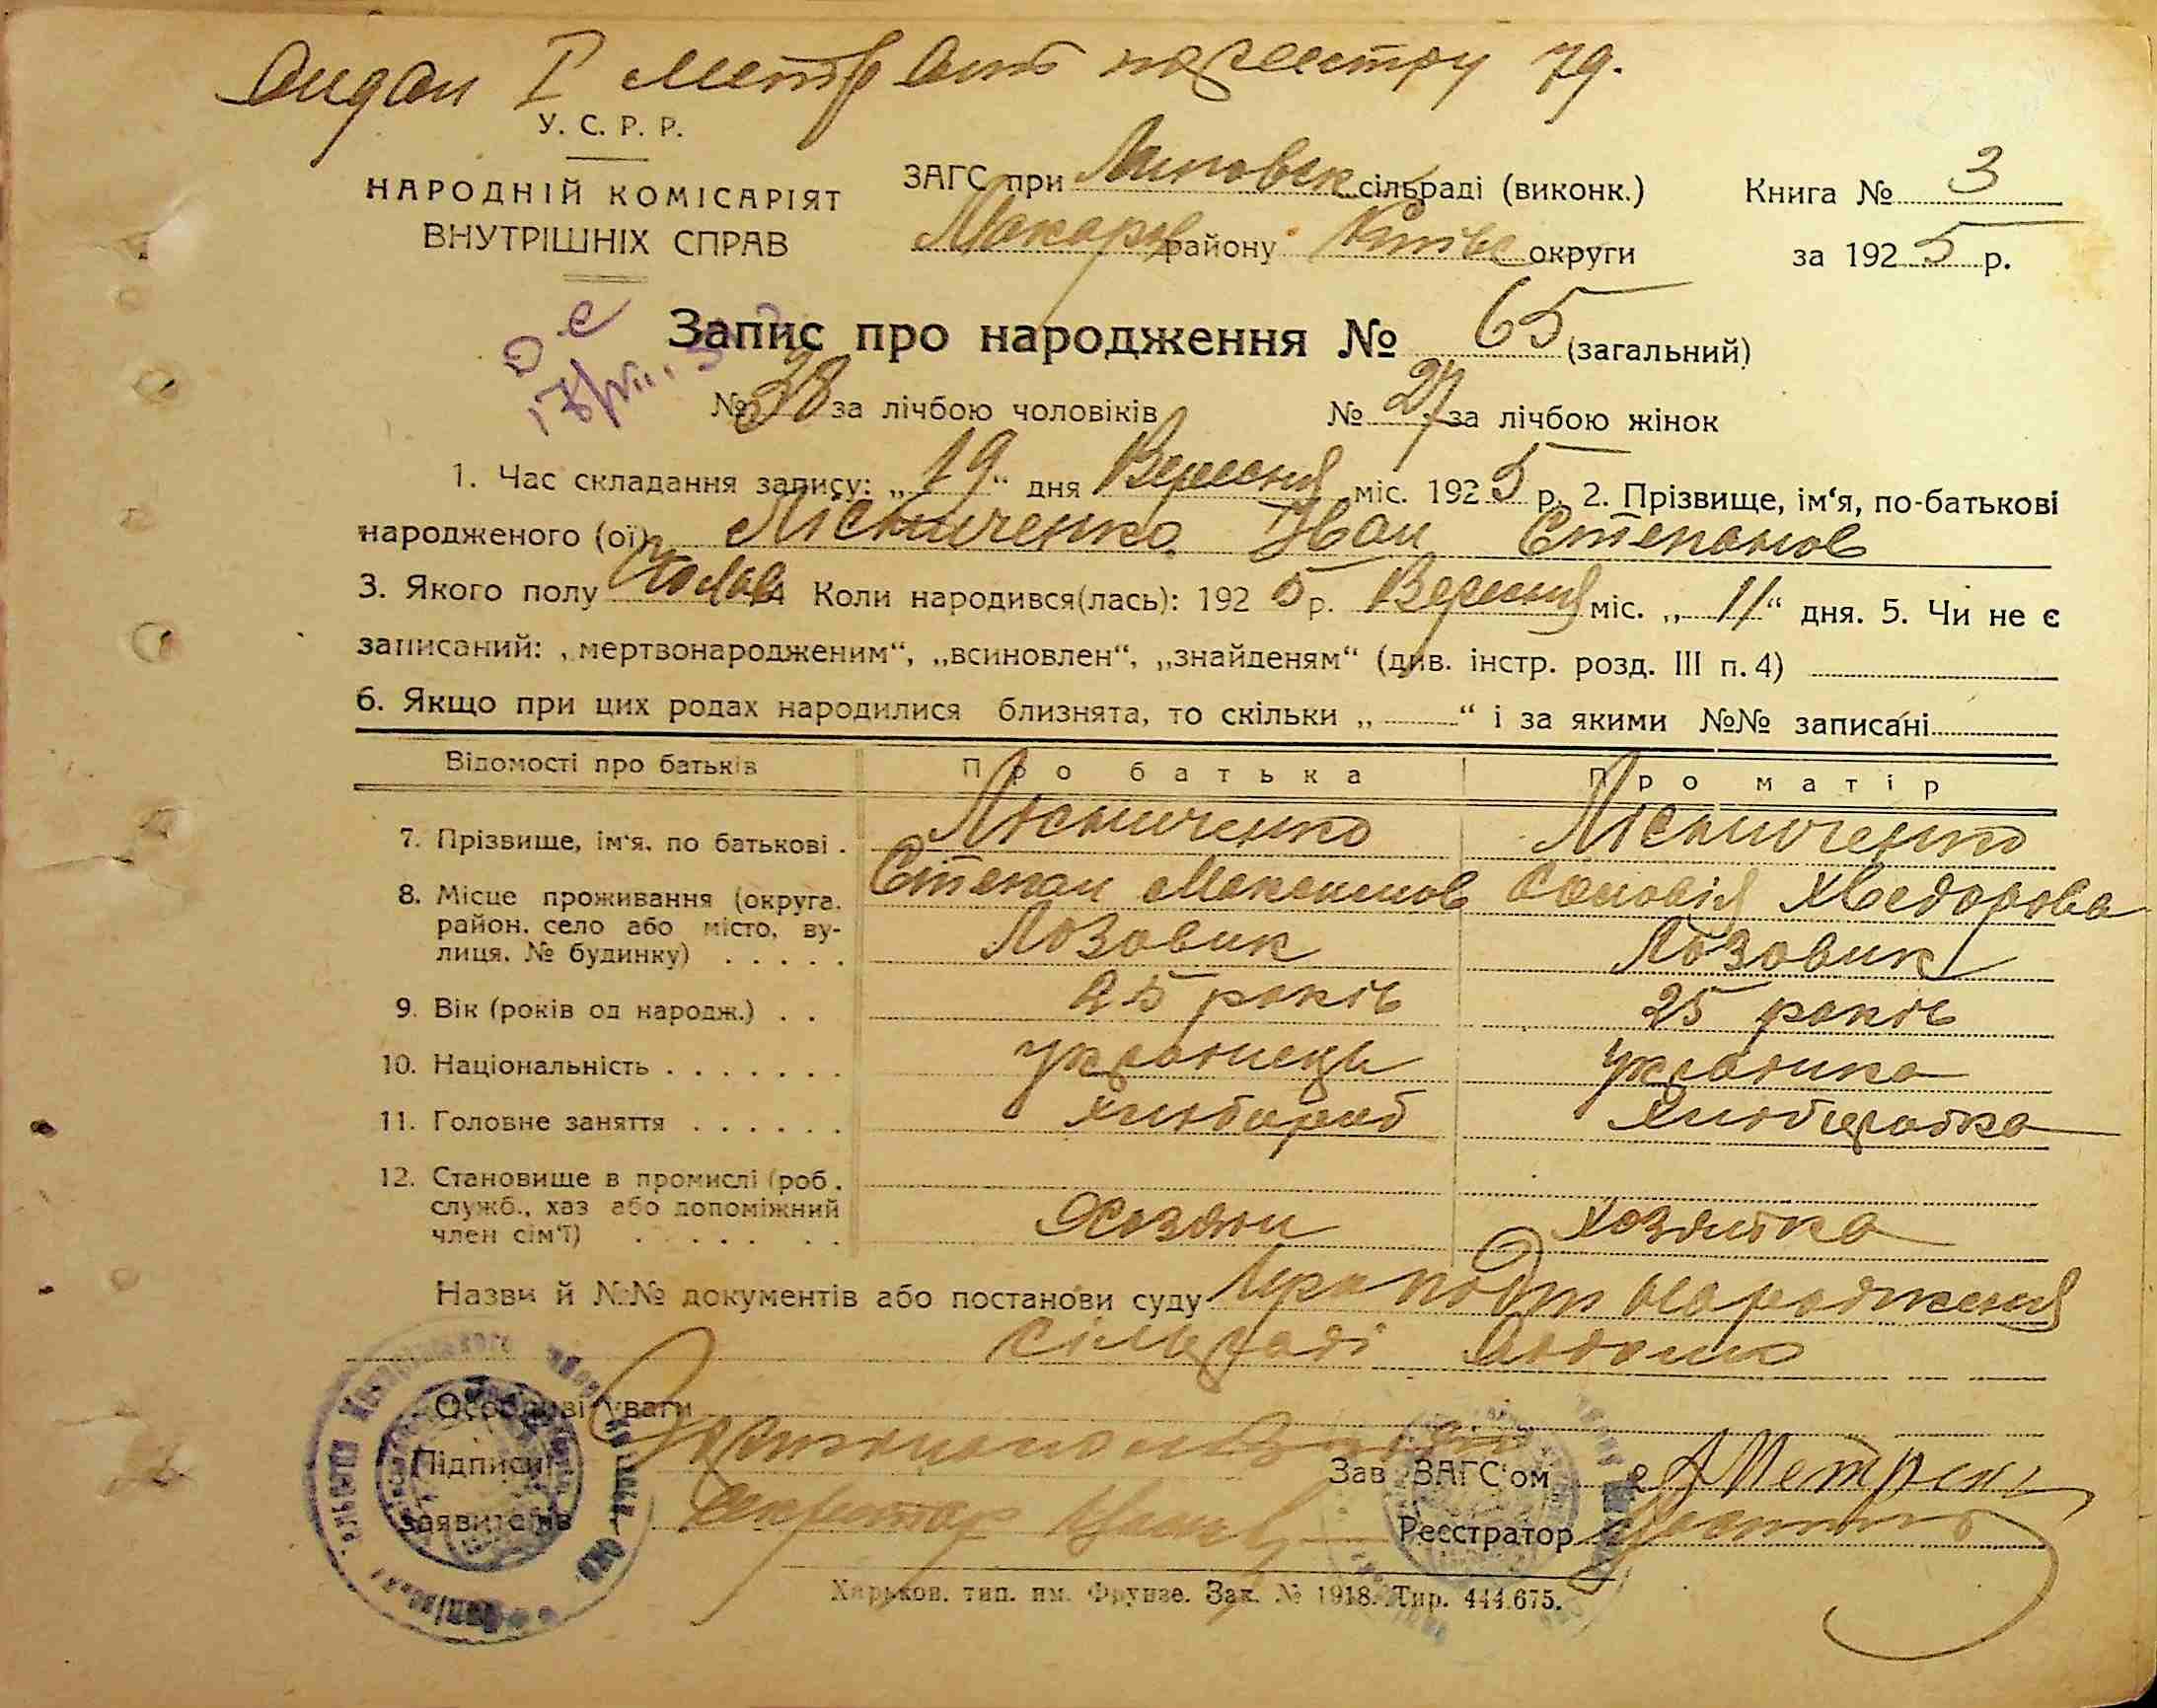 видан І метр Вип по реєстру 79.
У. С. Р. Р.
НАРОДНІЙ КОМІСАРІЯТ
ВНУТРІШНІХ СПРАВ
ЗАГС при Липовск сільраді (виконк.)
Макарів району Київс округи
Книга № 3
за 1925 р.
Запис про народження № 65 (загальний)
№ 38 за лічбою чоловіків № 27 за лічбою жінок
1. Час складання запису: „19“ дня Вересня міс. 1925 р. 2. Прізвище, ім‘я, по-батькові
народженого (ої) Лісниченко Іван Степанов
3. Якого полу Чолов 4 Коли народився(лась): 1925 р. Вересня міс. „11“ дня. 5. Чи не є
записаний: „мертвонародженим“, „всиновлен“, „знайденям“ (див. інстр. розд. III п. 4)
6. Якщо при цих родах народилися близнята, то скільки „ “ і за якими №№ записані
Відомості про батьків Про батька Про матір
7. Прізвище, ім‘я, по батькові . Лісниченко Лісниченко
Степан Максимов Хведорова
8. Місце проживання (округа, район, село або місто, вулиця, № будинку) Лозовик Лозовик
9. Вік (років од народж.) . . 25 років 25 років
10. Національність . . . . . . . українець українка
11. Головне заняття . . . . . . хлібороб хліборобка
12. Становище в промислі (роб., служб., хаз або допоміжний член сім‘ї) Хозяїн хозяйка
Назви й №№ документів або постанови суду про народження
сільраді
Особливі уваги
Підписи
заявителів Секретар
Зав ЗАГС‘ом
Реєстратор
Харьков. тип. им. Фрунзе. Зак. № 1918. Тир. 444.675.